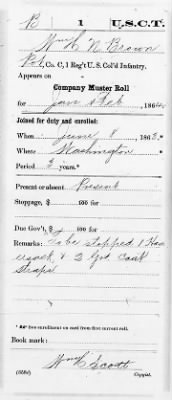 B | 1 | U.S.C.T.
Wm H N Brown
Pvt, Co. C, 1 Reg't U.S. Col'd Infantry.
Appears on
Company Muster Roll
for Jan & Feb, 1864.
Joined for duty and enrolled:
When June 8, 1863.*
Where Washington
Period 3 years.*
Present or absent Present
Stoppage, $ 100 for
Due Gov't, $ 100 for
Remarks: To be stopped 1 Hav
ersack & 2 Coat
Straps
* See enrollment on card from first muster roll.
Book mark:
Wm H Scott
(358d) Copyist.